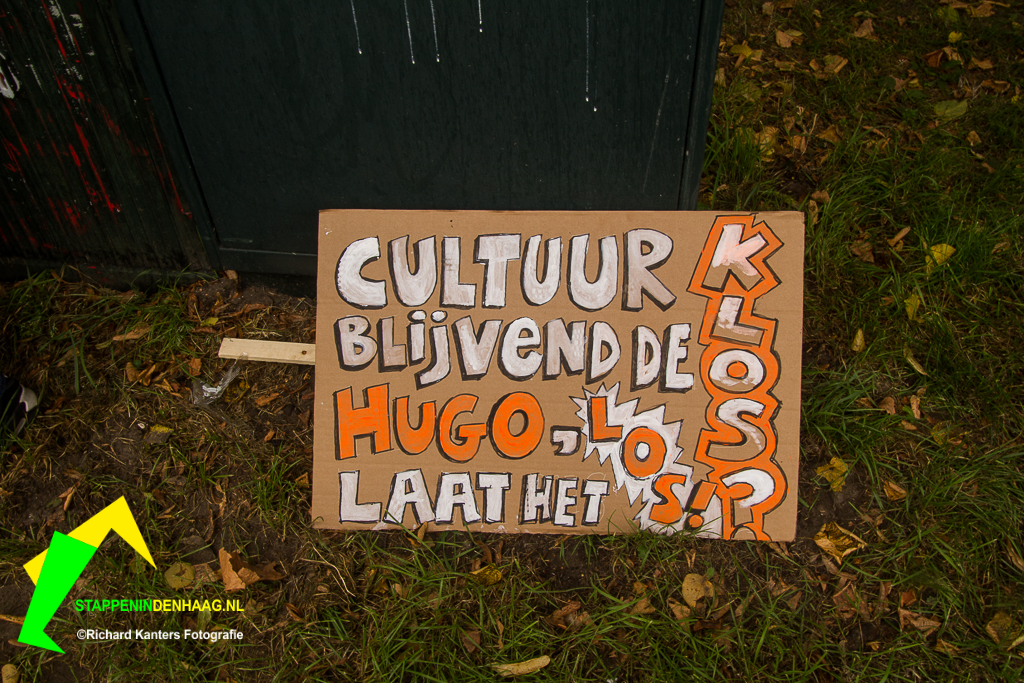 CULTUUR
BLijVEND DE
KLOS?
HUGO, LOS!
LAAT HET
STAPPENINDENHAAG.NL
©Richard Kanters Fotografie